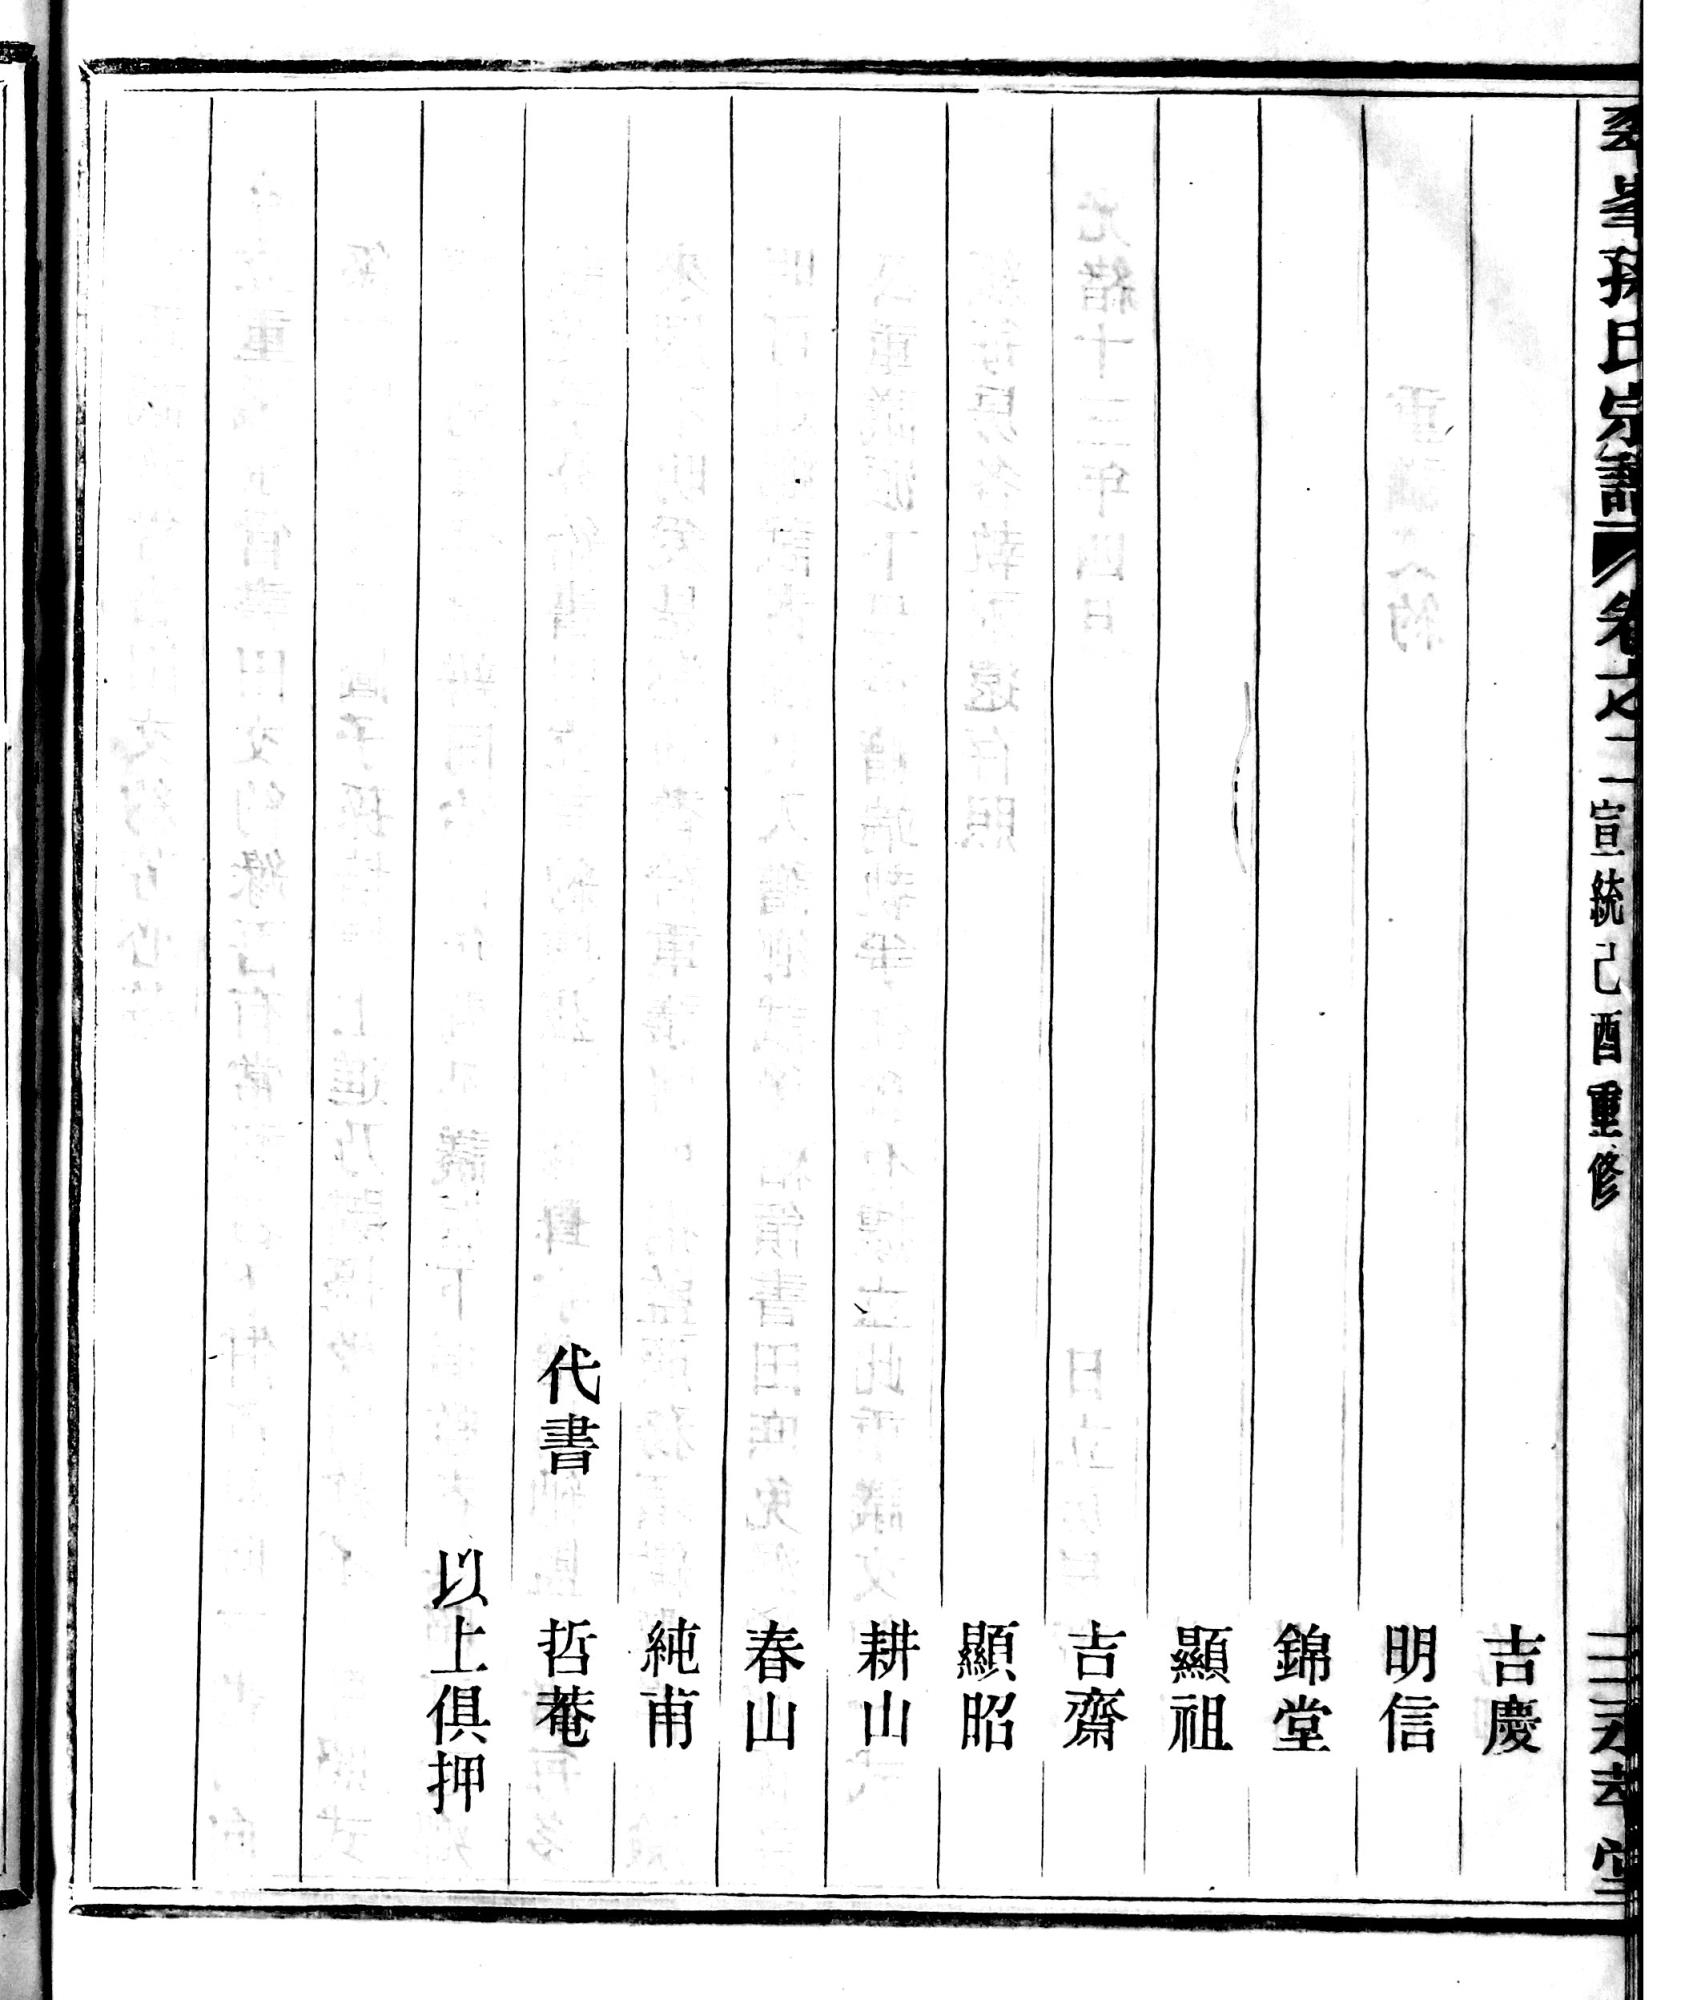 孫氏宗譜
宣統己酉重修
吉慶
明信
錦堂
顯祖
吉齋
顯昭
耕山
春山
純甫
代書 哲菴
以上俱押